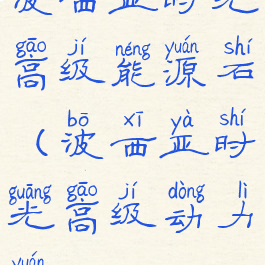 波西亚时光
gāo jí néng yuán shí
高级能源石
bō xī yà shí
(波西亚时
guāng gāo jí dòng lì
光高级动力
yuán